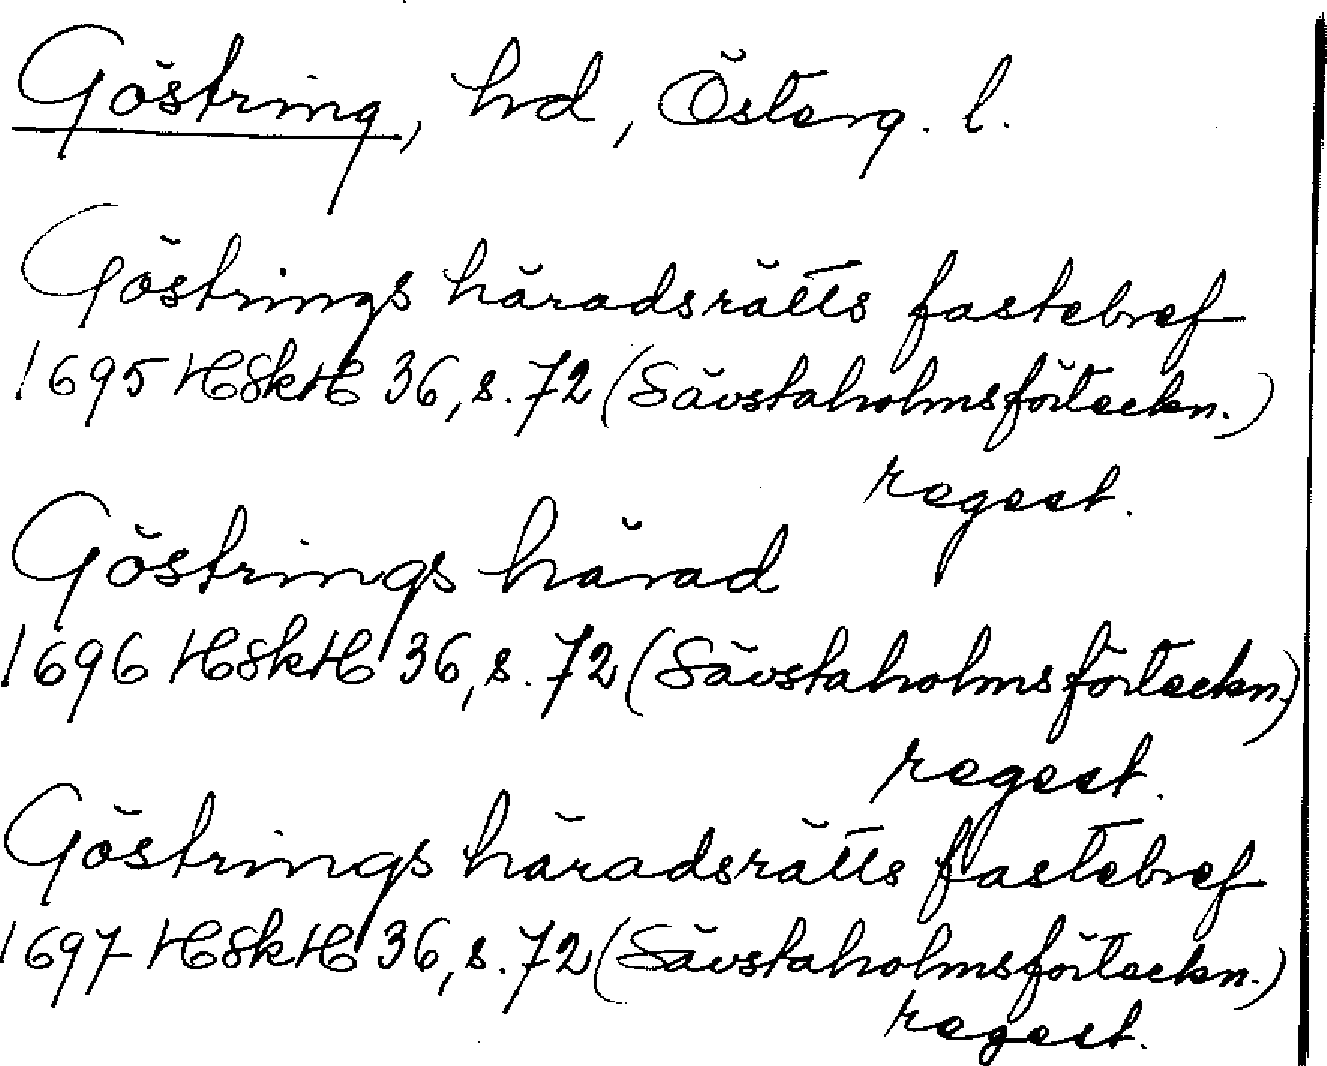 Göstring, hd, Österg. l.
Göstrings häradsrätts fastebref
1695 HSkH 36, s. 72 (Sävstaholmsförteckn.)
regest.
Göstrings härad
1696 HSkH 36, s. 72 (Sävstaholmsförteckn.)
regest.
Göstrings häradsrätts fastebref
1697 HSkH 36, s. 72 (Sävstaholmsförteckn.)
regest.